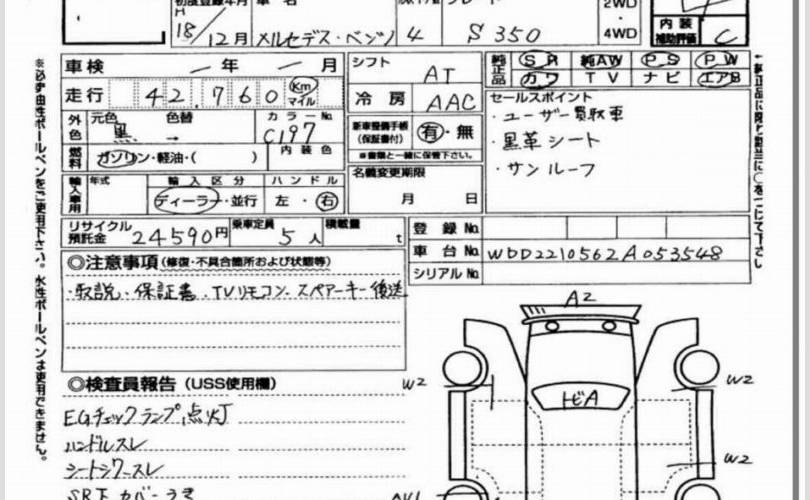 初度登録年月 車名
H
18/12月 メルセデス・ベンツ 4 S350
2WD
・
4WD
内装
補助評価 C
車検 ー年 ー月
走行 42,760 Km マイル
シフト AT
冷房 AAC
純正品 SR 純AW PS PW
カワ TV ナビ エアB
外色 元色 黒 色替 → カラーNo. C197
燃料 ガソリン・軽油・( ) 内装色
新車整備手帳
(保証書付) 有・無
※書類と一緒に保管下さい。
セールスポイント
・ユーザー買取車
・黒革シート
・サンルーフ
輸入車用 年式 輸入区分 ハンドル
ディーラー・並行 左・右
名義変更期限
月 日
リサイクル
預託金 24590円 乗車定員 5人 積載量 t
登録No.
車台No. WDD2210562A053548
シリアルNo.
◎注意事項(修復・不具合箇所および状態等)
・取説、保証書、TVリモコン、スペアーキー後送
◎検査員報告(USS使用欄)
EGチェックランプ点灯
ハンドルスレ
シートシワ・スレ
SR下カバーうき
A2
W2
W2
トビA
W2
※必ず油性ボールペンをご使用下さい。水性ボールペンは使用できません。